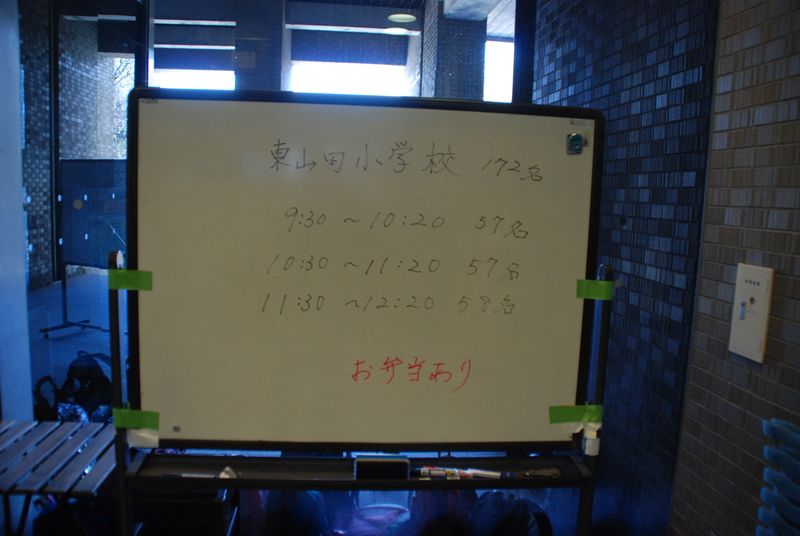 東山田小学校 172名
9:30 ~ 10:20 57名
10:30 ~ 11:20 57名
11:30 ~ 12:20 58名
お弁当あり